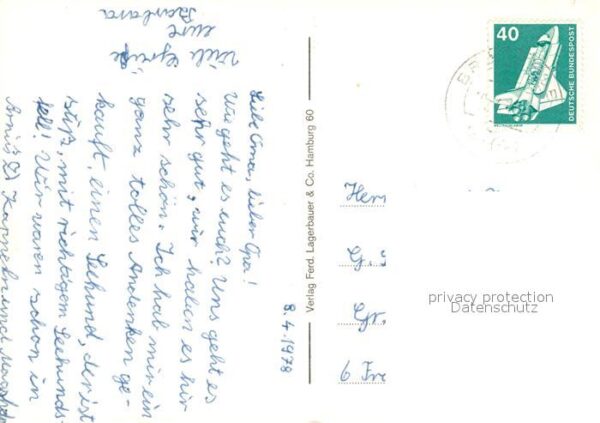 8.4.1978
Liebe Oma, lieber Opa!
Wie geht es euch? Uns geht es
sehr gut, wir haben es hir
sehr schön. Ich hab mir ein
ganz tolles Andenken ge-
kauft, einen Seehund, der ist
süß, mit richtigem Seehunds-
fell! Wir waren schon in
Karneh und
Viele Grüße
eure
Barbara
Verlag Ferd. Lagerbauer & Co. Hamburg 60
40
DEUTSCHE BUNDESPOST
Herr
G.
Gr.
6 Fr
privacy protection
Datenschutz